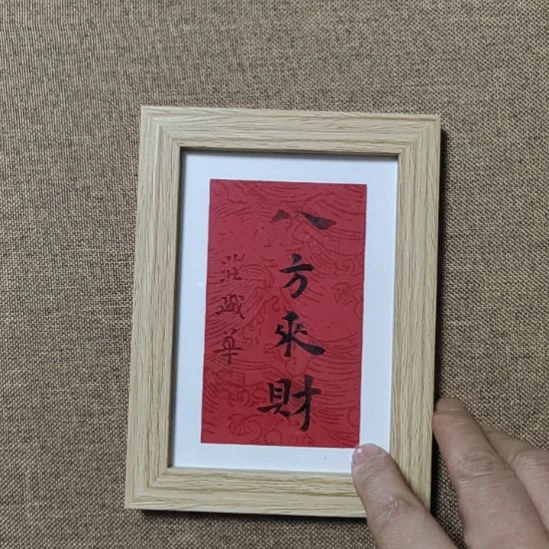 八方來財
莊盛華